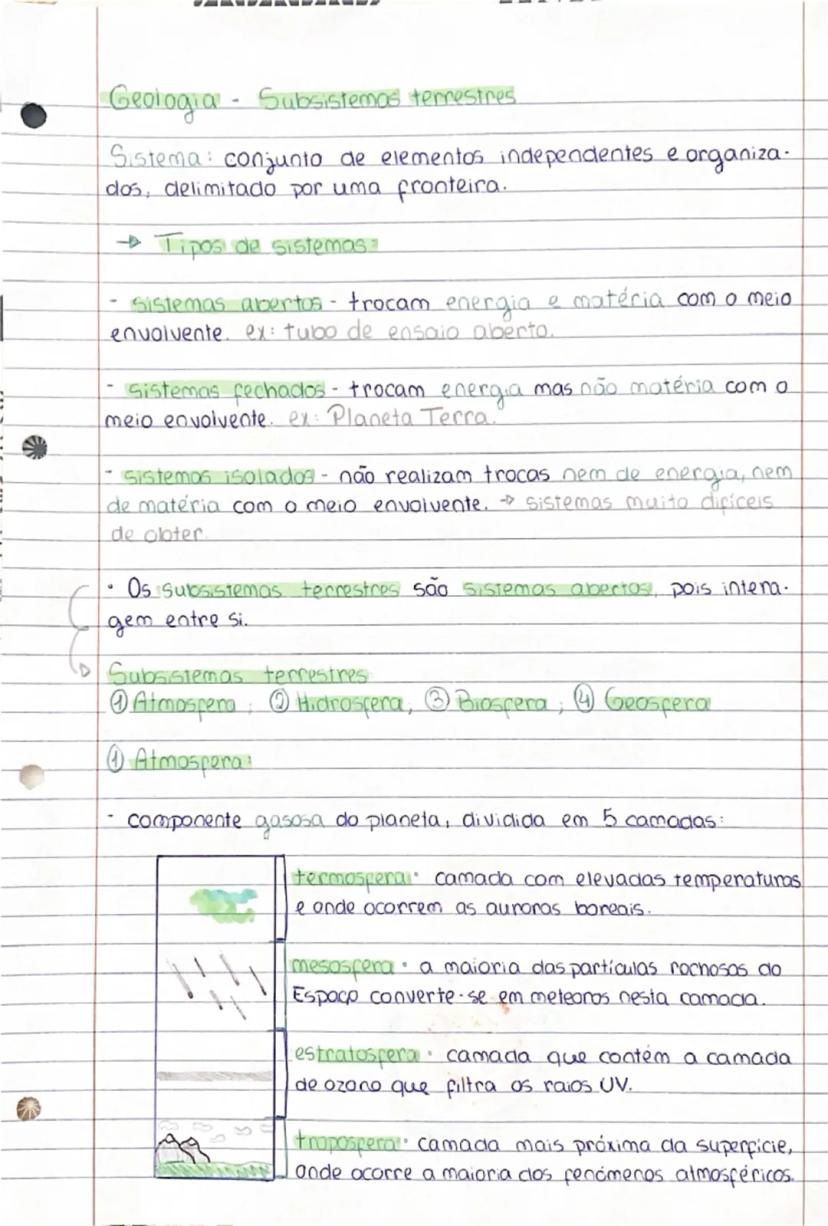 Geologia - Subsistemas terrestres
Sistema: conjunto de elementos independentes e organiza-
dos, delimitado por uma fronteira.
→ Tipos de sistemas:
- sistemas abertos - trocam energia e matéria com o meio
envolvente. ex: tubo de ensaio aberto.
- sistemas fechados - trocam energia mas não matéria com o
meio envolvente. ex: Planeta Terra.
- sistemas isolados - não realizam trocas nem de energia, nem
de matéria com o meio envolvente. → sistemas muito difíceis
de obter.
· Os subsistemas terrestres são sistemas abertos, pois intera-
gem entre si.
Subsistemas terrestres
① Atmosfera; ② Hidrosfera, ③ Biosfera; ④ Geosfera
① Atmosfera:
- componente gasosa do planeta, dividida em 5 camadas:
termosfera: camada com elevadas temperaturas
e onde ocorrem as auroras boreais.
mesosfera: a maioria das partículas rochosas do
Espaço converte-se em meteoros nesta camada.
estratosfera: camada que contém a camada
de ozono que filtra os raios UV.
troposfera: camada mais próxima da superfície,
onde ocorre a maioria dos fenómenos atmosféricos.